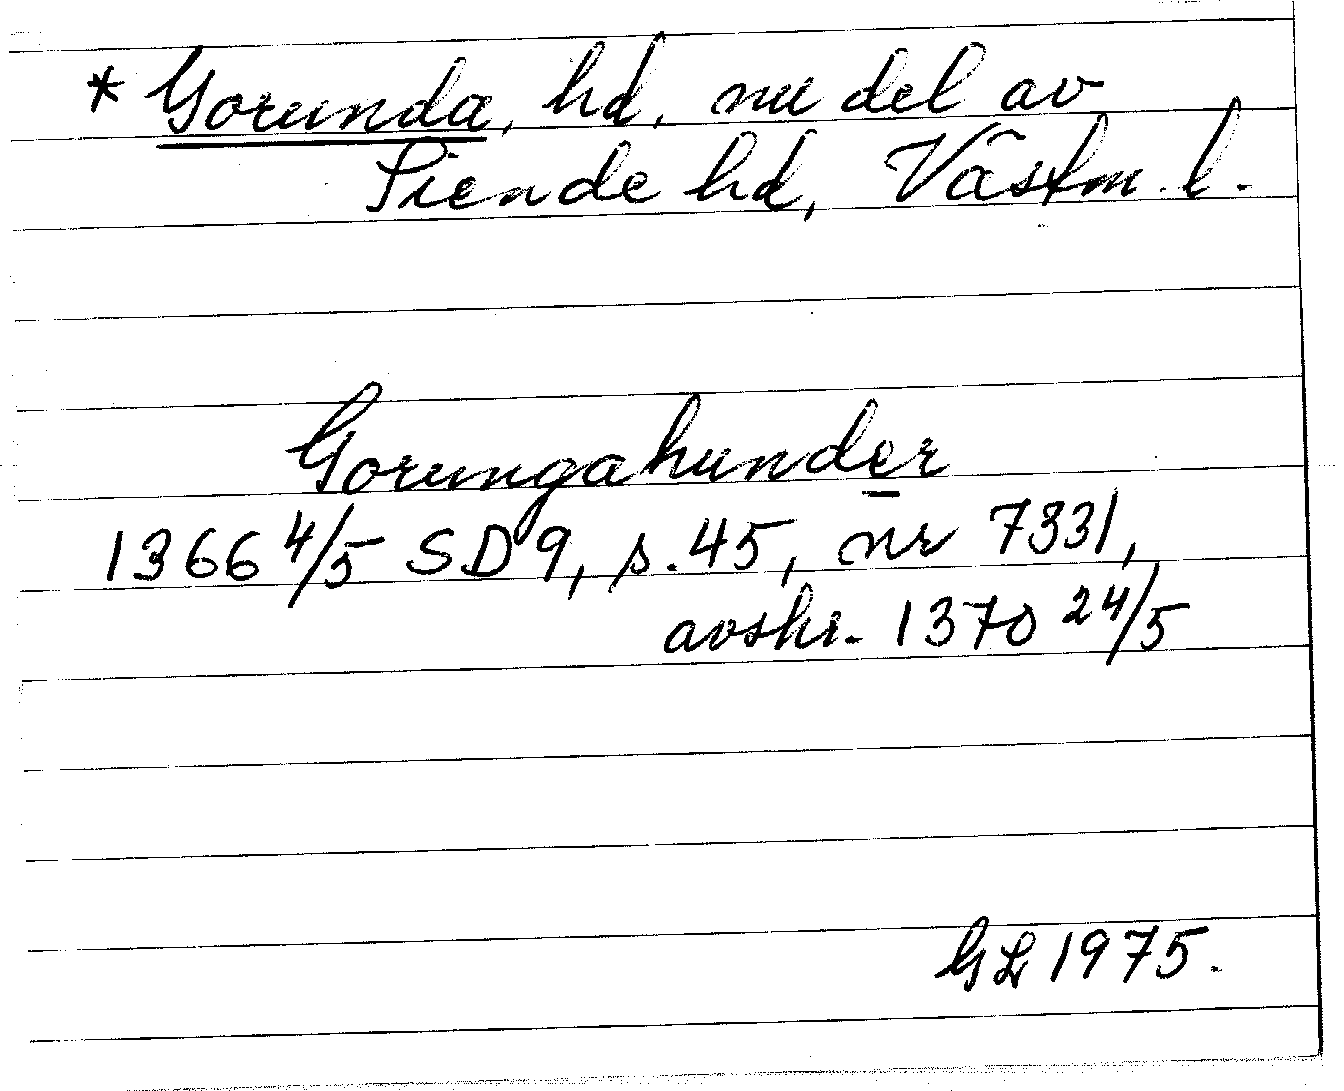 * Gorunda, hd, nu del av
Siende hd, Västm. l.
Gorungahunder
1366 4/5 SD 9, s. 45, nr 7331,
avskr. 1370 24/5
GL 1975.